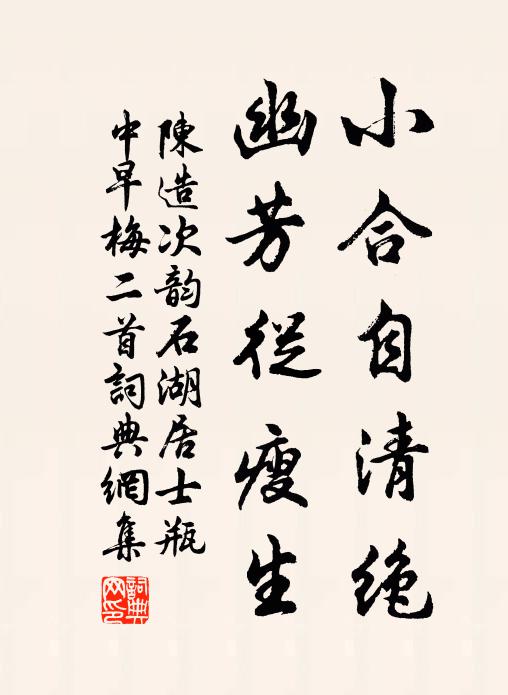 小合自清绝
幽芳從瘦生
陳造次韵石湖居士瓶
中早梅二首詞典網集
詞典
网印